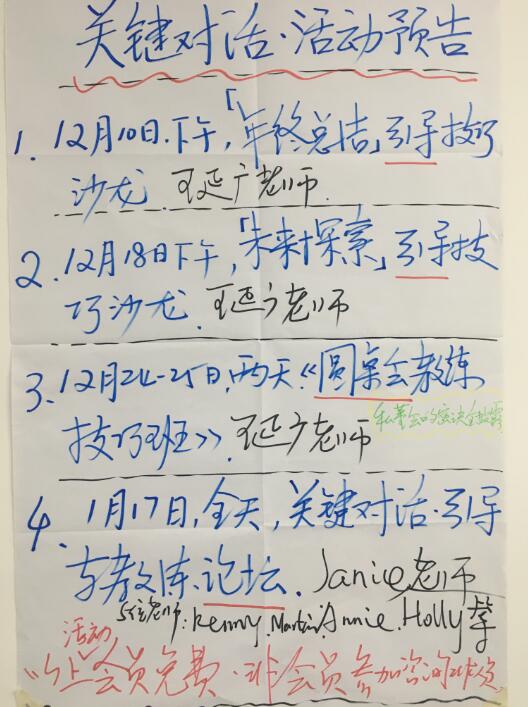 关键对话·活动预告
1. 12月10日.下午,「年终总结」引导技巧
沙龙. 王延广老师.
2. 12月18日下午,「未来探索」引导技
巧沙龙. 王延广老师
3. 12月24-25日,两天《圆桌会教练
技巧班》. 王延广老师
私董会的秘诀全披露
4. 1月17日,全天,关键对话·引导
与教练论坛. Janie老师
5位老师: Kenny. Martin Annie. Holly 等
活动
以上会员免费·非会员参加咨询工作人员